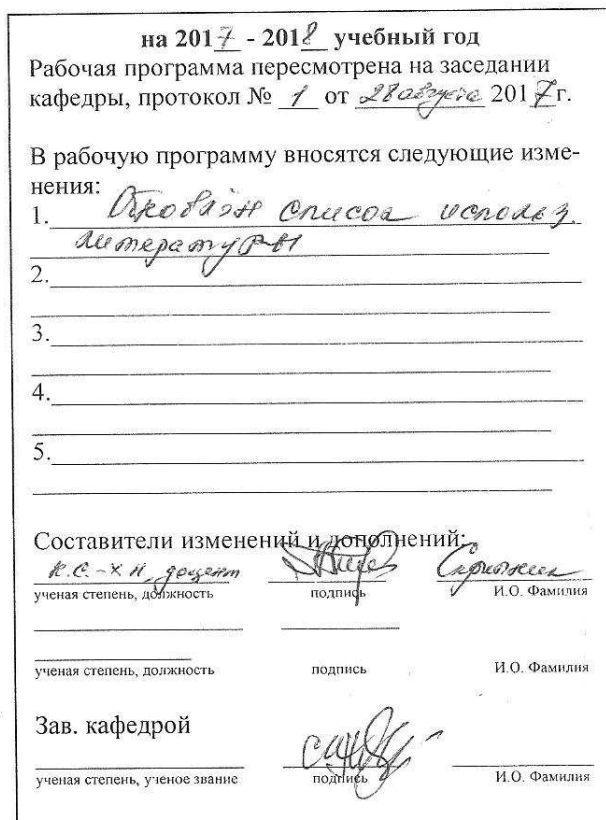 на 2017 - 2018 учебный год
Рабочая программа пересмотрена на заседании
кафедры, протокол № 1 от 28 августа 2017 г.
В рабочую программу вносятся следующие изме-
нения:
1. список использ.
литературы
2.
3.
4.
5.
Составители изменений и дополнений:
к.с.-х н, доцент
ученая степень, должность подпись И.О. Фамилия
ученая степень, должность подпись И.О. Фамилия
Зав. кафедрой
ученая степень, ученое звание подпись И.О. Фамилия